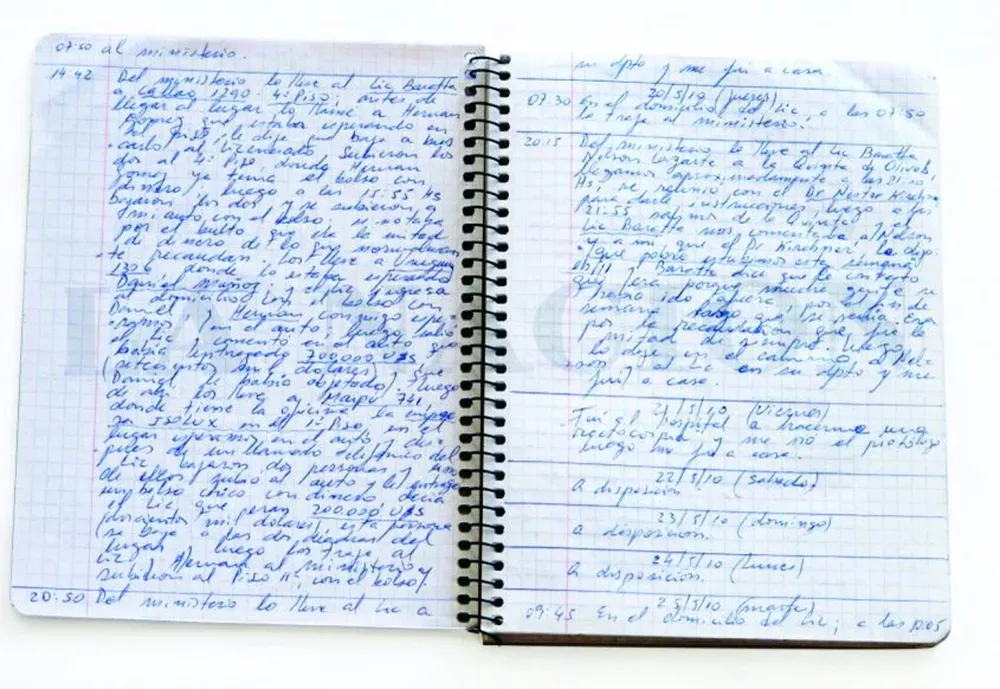 07:50 al ministerio.
14:42 Del ministerio lo lleve al Lic Baratta
a Callao 1290. 4º Piso; antes de
llegar al lugar lo llame a Hernan
Gomez que estaba esperando en
el Piso, le dije que baje a bus-
carlo al Licenciado. Subieron los
dos al 4º Piso donde Hernan
Gomez ya tenia el bolso con
dinero; luego a las 15:55 Hs
bajaron los dos y se subieron a
mi auto con el bolso; se notaba
por el bulto que era la mitad
de dinero de lo que normalmen-
te recaudan. Los lleve a Uruguay
1306, donde lo estaba esperando
Daniel Muñoz; y el Lic ingresa
al domicilio con el bolso con
Daniel; y Hernan conmigo espe-
ramos en el auto. Luego salio
el Lic y comento en el auto que
habia entregado 700.000 U$S
(setecientos mil dolares) que
Daniel le habia objetado. Luego
de ahi los lleve a Maipu 741,
donde tiene la oficina la empre-
sa ISOLUX en el 1º Piso, en el
lugar esperamos en el auto y des-
pues de un llamado telefonico del
Lic bajaron dos personas y uno
de ellos subio al auto y le entrego
un bolso chico con dinero decia
el Lic que eran 200.000 U$S
(doscientos mil dolares), esta persona
se bajo a las dos cuadras del
lugar luego los traje al
Lic y Hernan al ministerio y
subieron al Piso 11º con el bolso.
20:50 Del ministerio lo lleve al Lic a
su dpto y me fui a casa.
20/5/10 (jueves)
07:30 En el domicilio del Lic, a las 07:50
lo traje al ministerio.
20:15 Del ministerio lo lleve al Lic Baratta
Nelson Lazarte a la Quinta de Olivos,
llegamos aproximadamente a las 21:00
Hs, se reunio con el Dr Nestor Kirchner
para darle instrucciones luego a las
21:55 salimos de la Quinta, el
Lic Baratta nos comentaba a Nelson
y a mi que el Dr Kirchner le dijo
"que pobre estubimos esta semana"
eh!!! y Baratta dice que le contesto
que era porque mucha gente se
habia ido afuera por el fin de
semana largo que se venia. Era
por la recaudacion que fue la
mitad de siempre. Luego
lo deje en el camino a Nel-
son y al Lic en su dpto y me
fui a casa.
21/5/10 (Viernes)
Fui al hospital a hacerme una
rectoscopia y me vio el proctologo
luego me fui a casa.
22/5/10 (sabado)
A disposicion.
23/5/10 (domingo)
a disposicion.
24/5/10 (lunes)
a disposicion.
25/5/10 (martes)
09:45 En el domicilio del Lic; a las 10:05